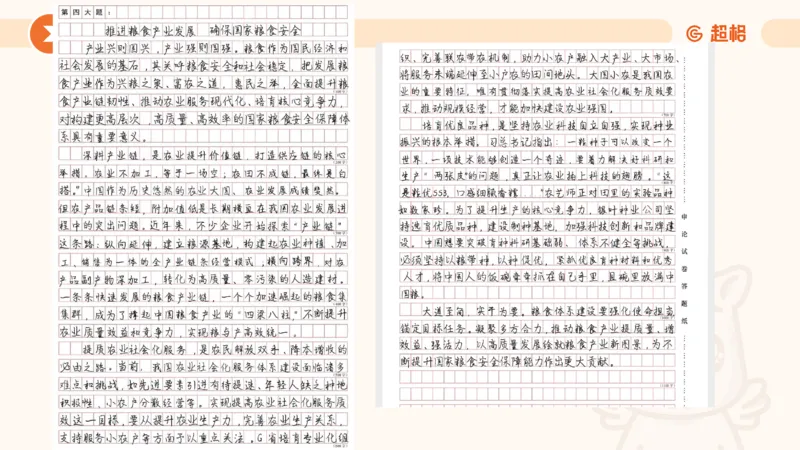 第四大题：
推进粮食产业发展 确保国家粮食安全
产业兴则国兴，产业强则国强。粮食作为国民经济和
社会发展的基石，其关乎粮食安全和社会稳定，把发展粮
食产业作为兴粮之策、富农之道、惠民之举，全面提升粮
食产业链韧性、推动农业服务现代化、培育核心竞争力，
对构建更高层次、高质量、高效率的国家粮食安全保障体
系具有重要意义。
深耕产业链，是农业提升价值链，打造供应链的核心
举措。农业不加工，等于一场空；农田不成链，最终是白
搭。"中国作为历史悠然的农业大国，农业发展成绩斐然。
但农产品链条短，附加值低是长期横亘在我国农业发展进
程中的突出问题。近年来，不少企业开始探索"产业链"
这条路，纵向延伸，建立粮源基地，构建起农业种植、加
工、销售为一体的全产业链条经营模式，横向跨界，对农
产品副产物深加工，转化为高质量、零污染的人造建材。
一条条快速发展的粮食产业链，一个个加速崛起的粮食集
集群，成为了撑起中国粮食产业的"四梁八柱"不断提升
农业质量效益和竞争力，实现粮与产高效统一。
提质农业社会化服务，是农民解放双手，降本增收的
必由之路。当前，我国农业社会化服务体系建设面临诸多
难点和挑战，如先进要素引进有待提速、年轻人缺乏种地
积极性、小农户分散经营等。实现提高农业社会化服务质
效这一目标，要从提升农业生产力，完善农业生产关系，
支持服务小农户等方面予以重点关注。G省培育专业化组
织、完善联农带农机制，助力小农户融入大产业、大市场，
将服务末端延伸至小户农的田间地头。大国小农是我国农
业的重要特征，唯有贯彻落实提高农业社会化服务质效要
求，推动规模经营，才能加快建设农业强国。
培育优良品种，是坚持农业科技自立自强，实现种业
振兴的根本举措。习总书记指出：一粒种子可以改变一个
世界，一项技术能够创造一个奇迹，要着力解决好科研和
生产"两张皮"的问题，真正让农业插上科技的翅膀。"这
是粒优553，口感细腻香糯……"农艺师正对田里的实验品种
如数家珍。为了提升生产的核心竞争力，银叶种业公司坚
持选育优质品种，建设制种基地，加强科技创新和品牌建
设。中国想要突破育种科研基础弱、体系不健全等挑战，
必须坚持以粮带种，以种促优，紧抓优良育种材料和优秀
人才，将中国人的饭碗牵牵抓在自己手里，且碗里放满中
国粮。
大道至简，实干为要。粮食体系建设要强化使命担当
锚定目标任务。凝聚多方合力，推动粮食产业提质量，增
效益、强活力，以高质量发展绘就粮食产业新图景，为不
断提升国家粮食安全保障能力作出更大贡献。
申论试卷答题纸
超格